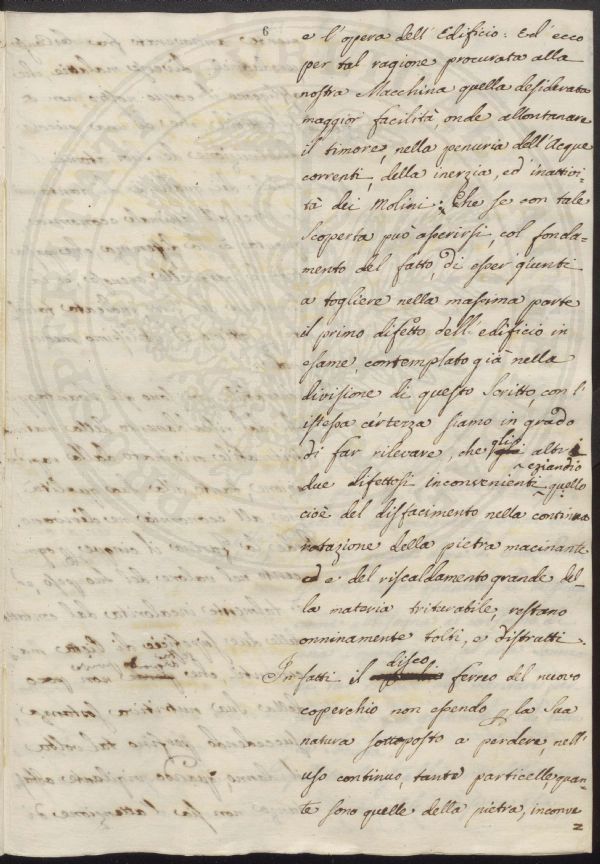 6
e l'opera dell'Edificio: Ed ecco
per tal ragione procurata alla
nostra Macchina quella desiderata
maggior facilità, onde allontanare
il timore, nella penuria dell'Acque
correnti, della inerzia, ed inattivi-
tà dei Molini: Che se con tale
scoperta può asserirsi, col fonda=
mento del fatto, di esser giunti
a togliere nella massima parte
il primo difetto dell'edificio in
esame, contemplato già nella
divisione di questo scritto, con l'
istessa certezza siamo in grado
di far rilevare, che gli altri
due difettosi inconvenienti eziandio quello
cioè del disfacimento nella continua
rotazione della pietra macinante
ed e del riscaldamento grande del-
la materia triturabile, restano
onninamente tolti, e distratti.
Infatti il disco ferreo del nuovo
coperchio non essendo p la sua
natura sottoposto a perdere, nell'
uso continuo, tante particelle, quan-
te sono quelle della pietra, inconve
=